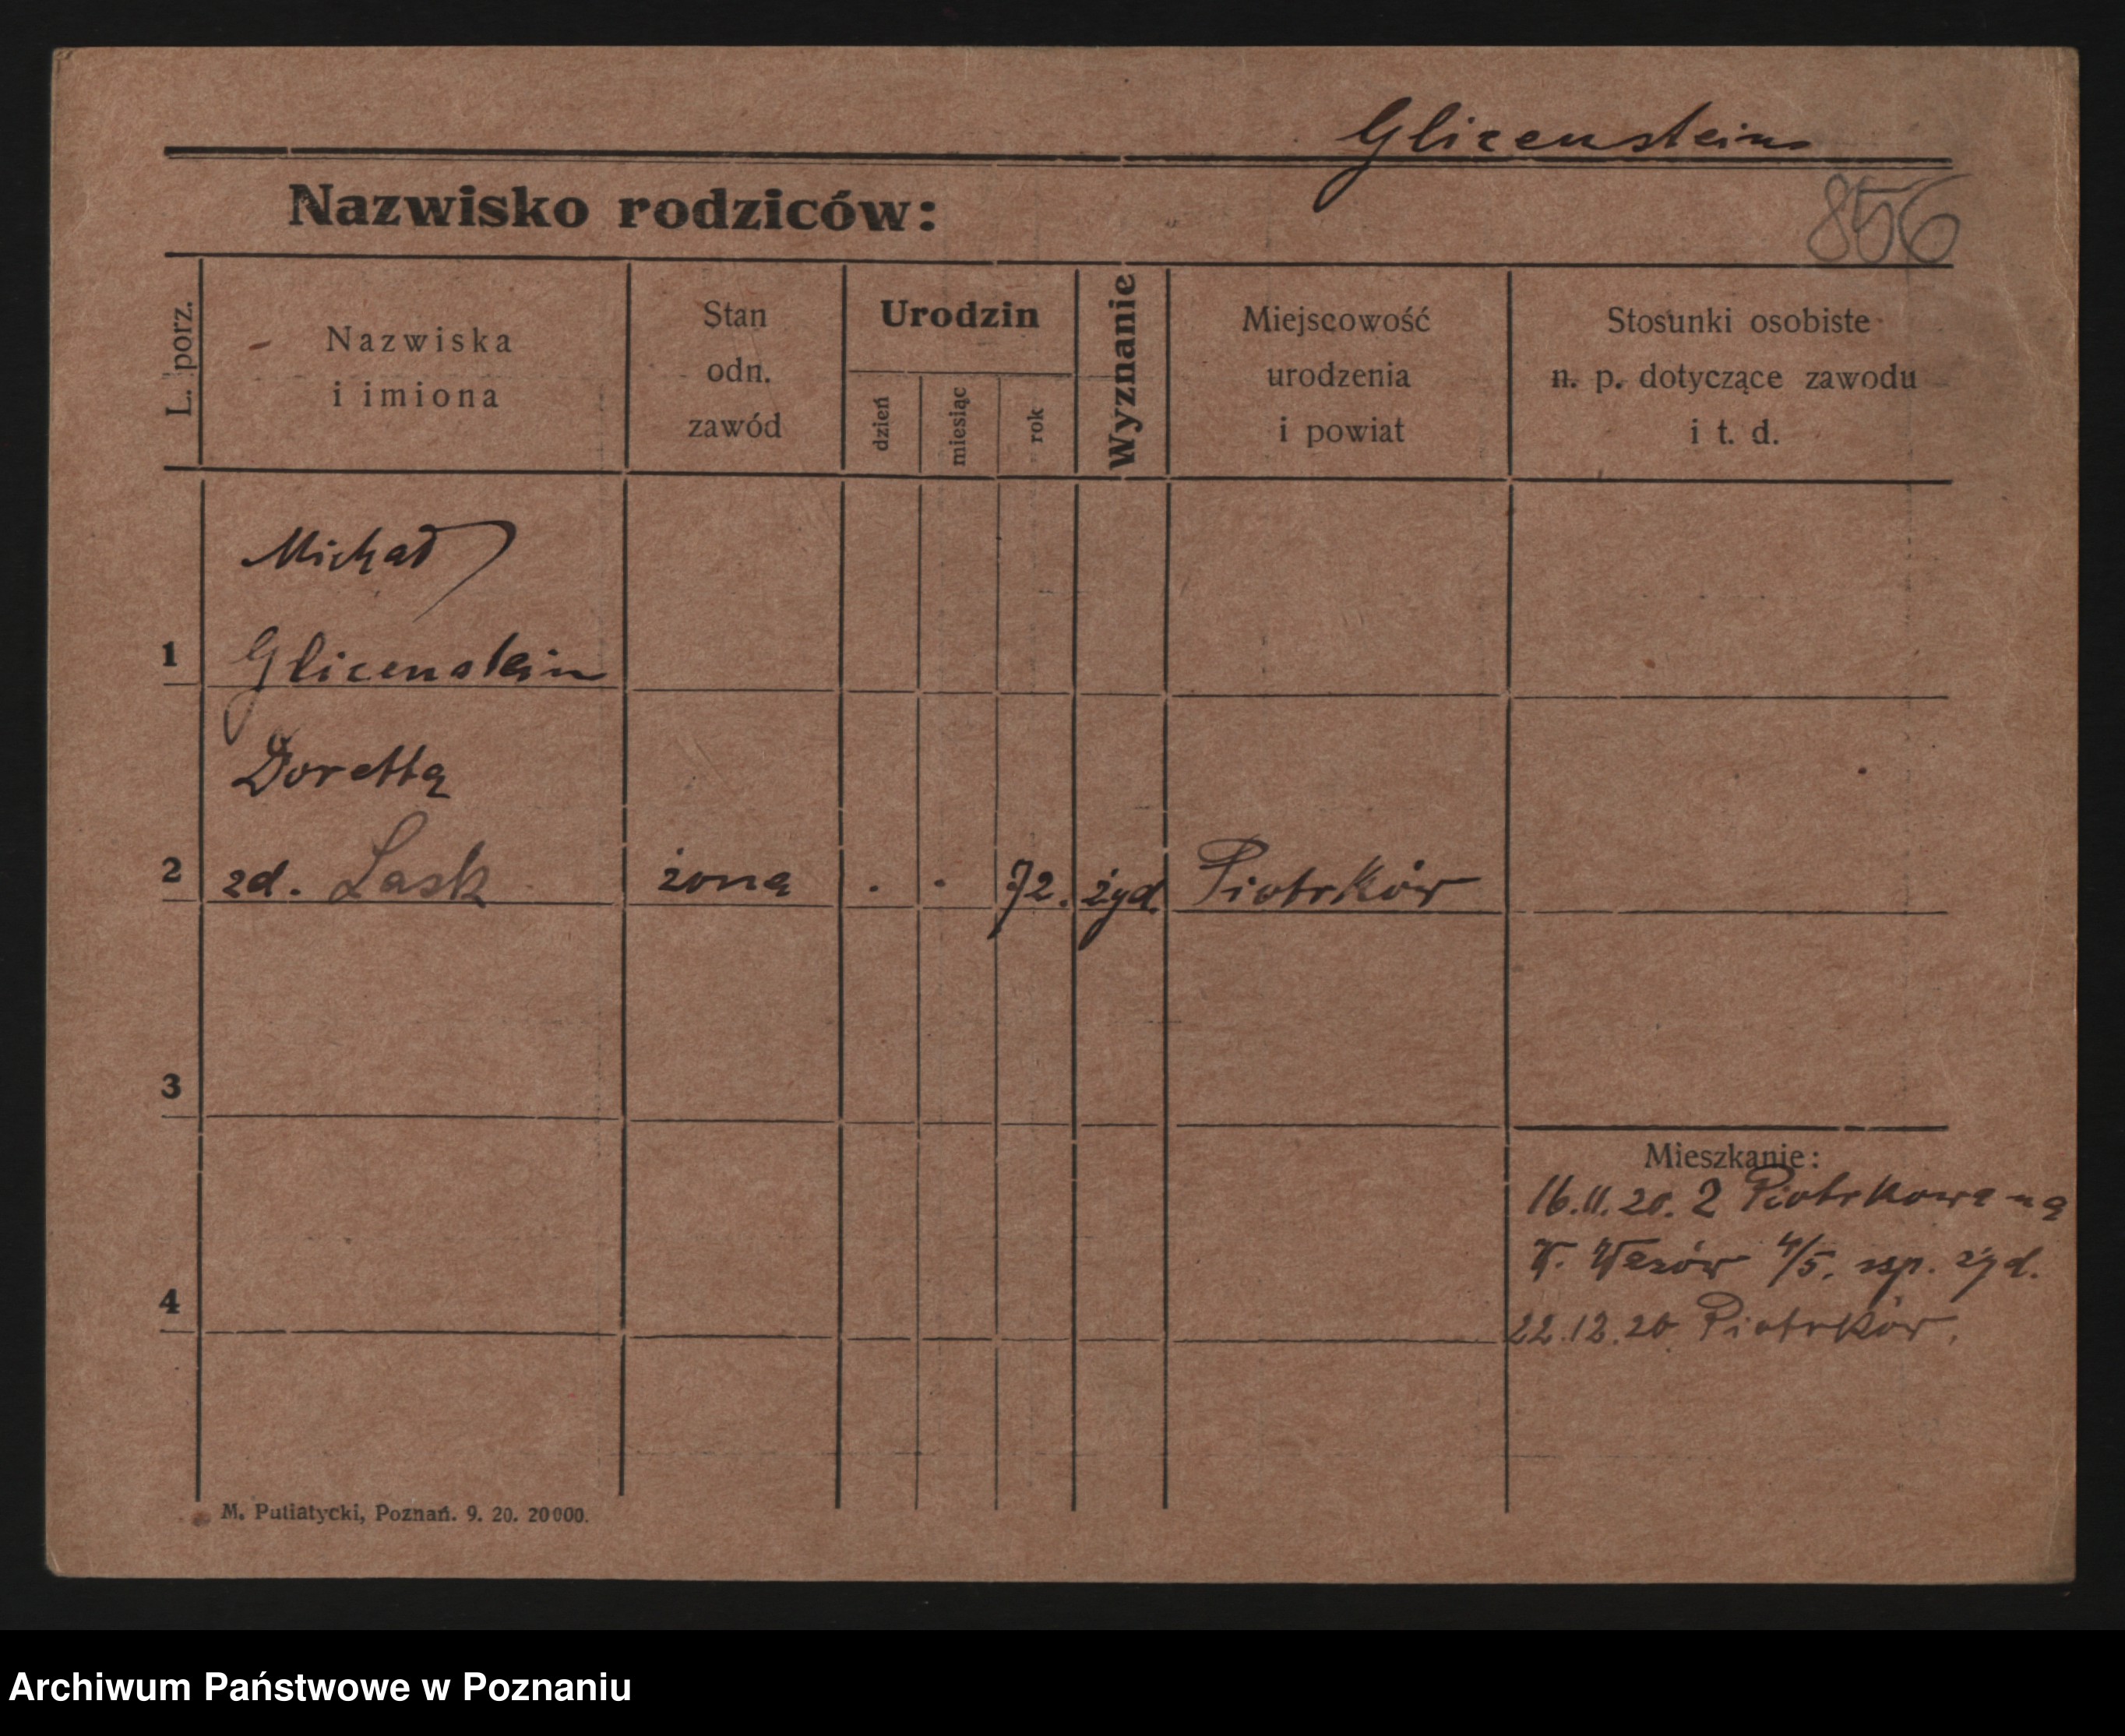 Glicenstein
Nazwisko rodziców:
856
L. porz.
Nazwiska
i imiona
Stan
odn.
zawód
Urodzin
dzień
miesiąc
rok
Wyznanie
Miejscowość
urodzenia
i powiat
Stosunki osobiste
n. p. dotyczące zawodu
i t. d.
Michał
1 Glicenstein
Doretta
2 zd. Lask żona . . 72. żyd Piotrków
3
Mieszkanie:
16.11.20. z Piotrkowa na
4/5. szp. żyd.
4
22.12.20 Piotrków.
M. Putiatycki, Poznań. 9. 20. 20000.
Archiwum Państwowe w Poznaniu